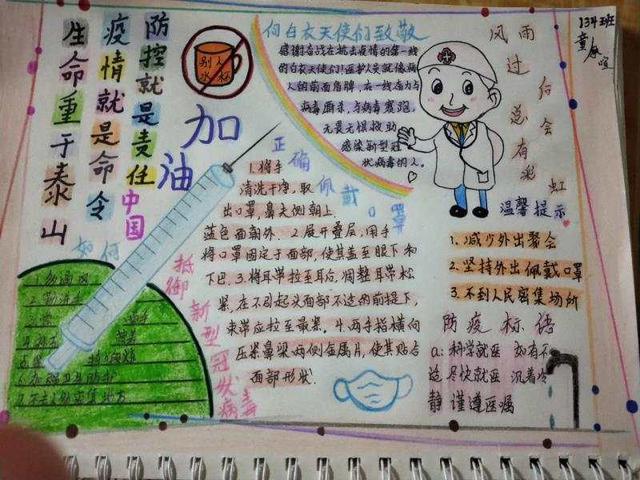 生命重于泰山
疫情就是命令
防控就是责任
中国
加油
别人
水杯
向白衣天使们致敬
感谢奋战在抗击疫情的第一线
的白衣天使们!医护人员就像病
人的前面盾牌,在一线奋力与
病毒厮杀,与病毒赛跑,
无畏无惧救助
感染新型冠
状病毒的人。
134班
风雨过后
总会有彩虹
温馨提示
1.减少外出聚会
2.坚持外出佩戴口罩
3.不到人民密集场所
防疫标语
a:科学就医 如有不
适 尽快就医 沉着冷
静 谨遵医嘱
正确佩戴口罩
1.将手
清洗干净,取
出口罩,鼻夹侧朝上,
蓝色面朝外.2.展开叠层,用手
将口罩固定于面部,使其盖至眼下和
下巴.3.将耳带拉至耳后,调整耳带松
紧,在不引起头面部不适的前提下,
束带应拉至最紧,4.两手指横向
压紧鼻梁两侧金属片,使其贴合
面部形状.
如何
抵御新型冠状病毒